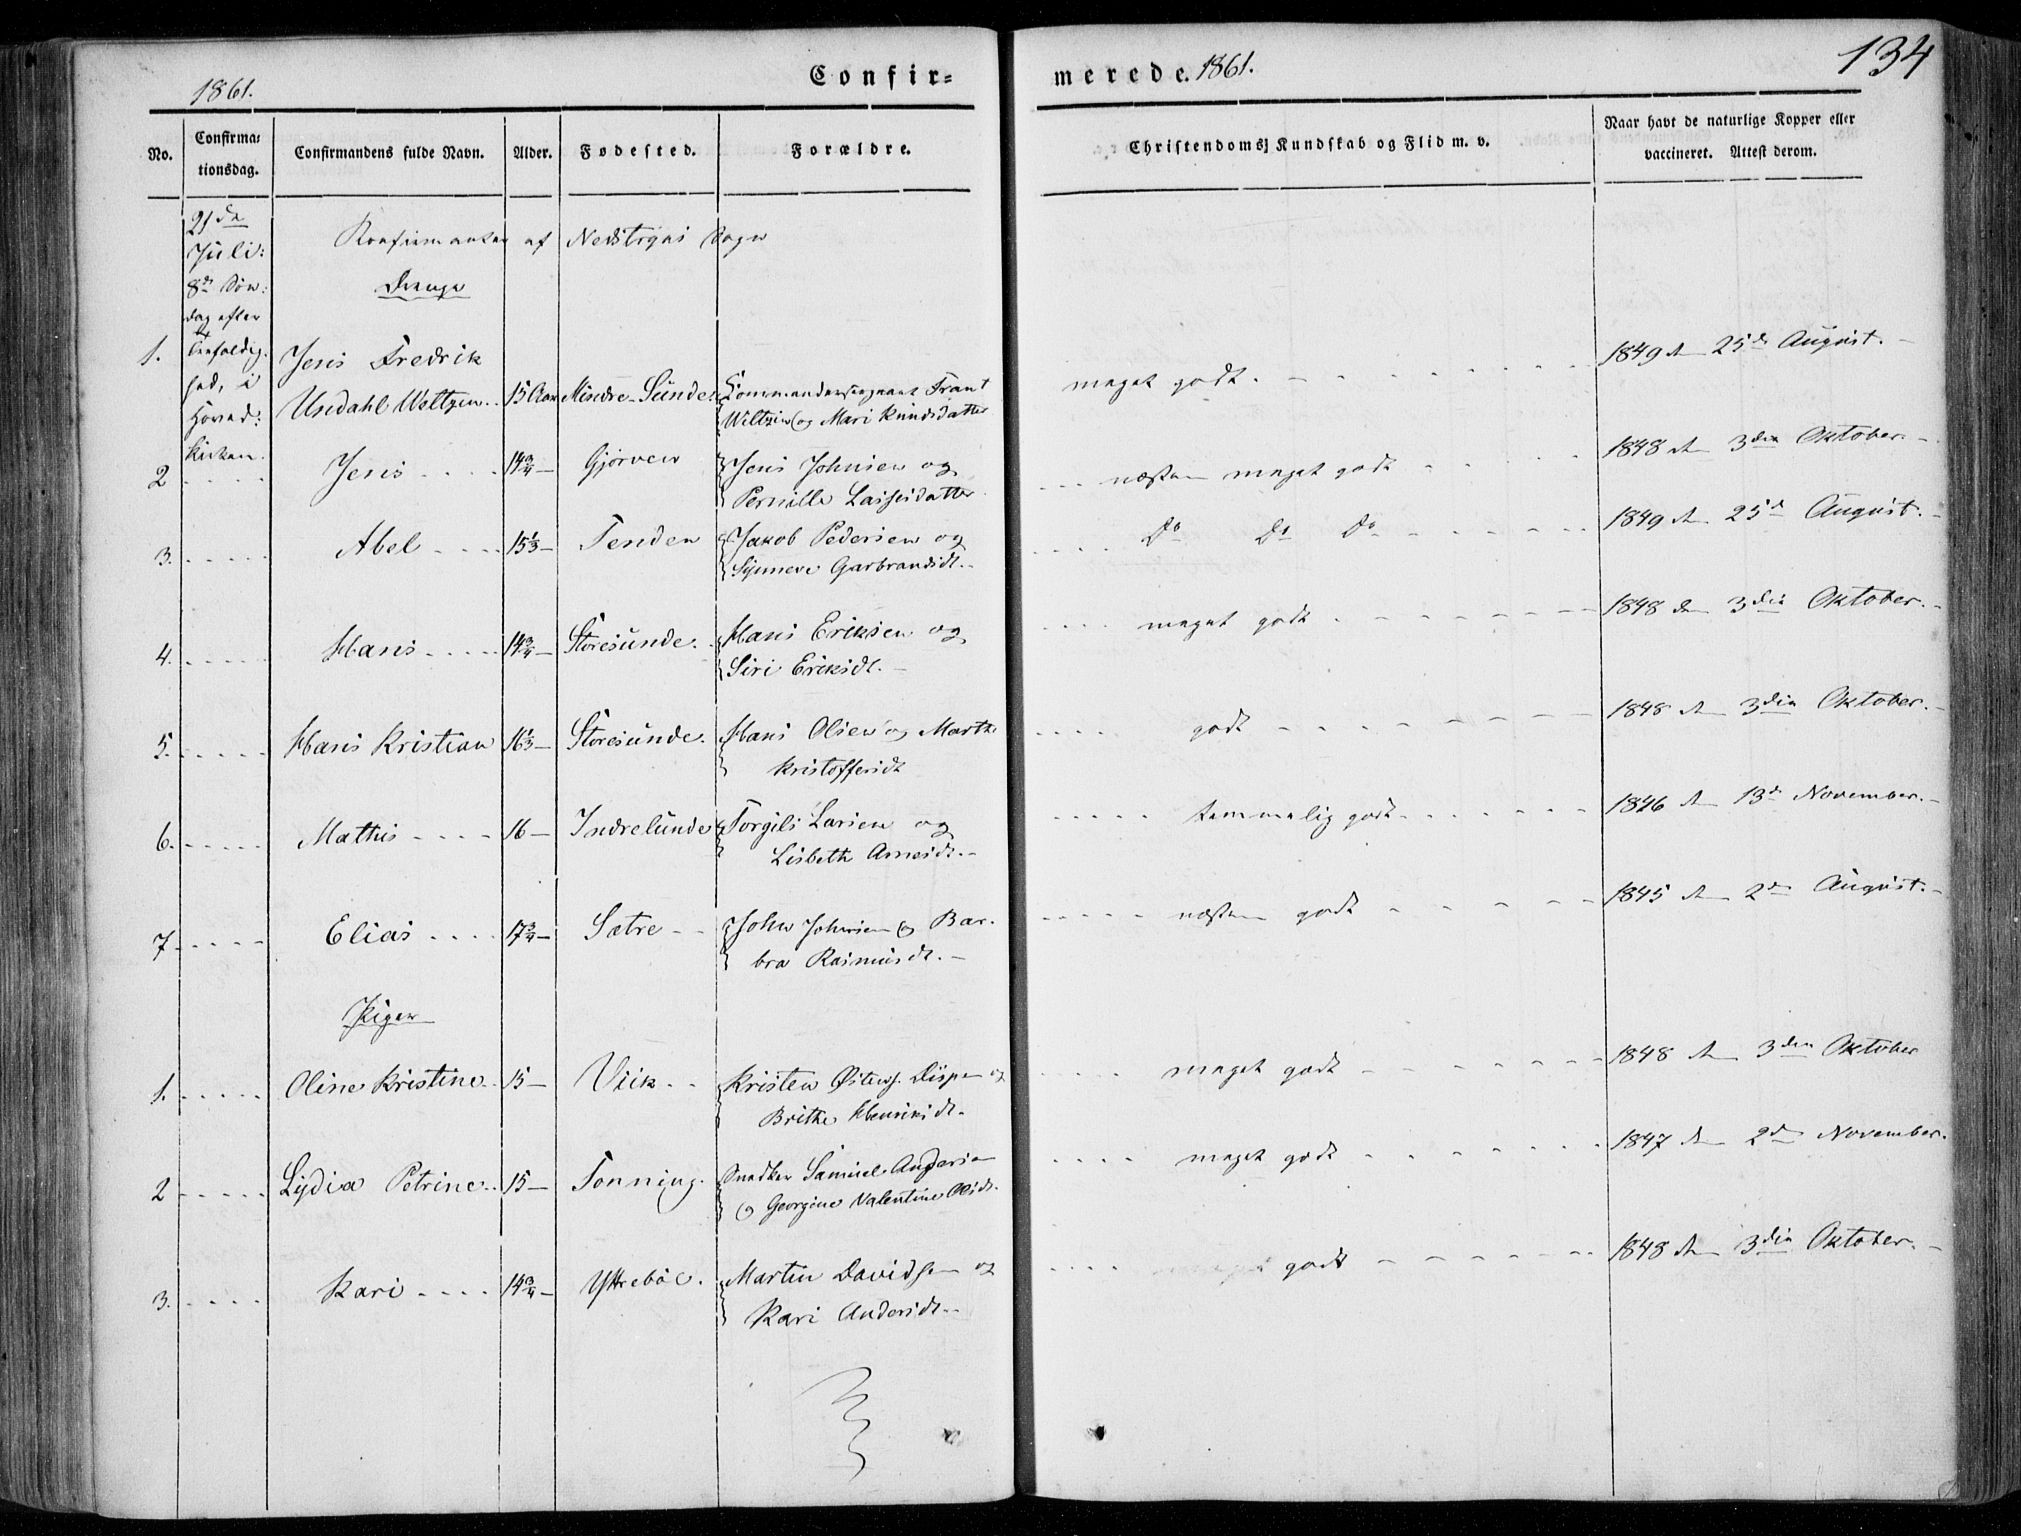 1861.
Confir=
merede. 1861.
134
No.
Confirma=
tionsdag.
Confirmandens fulde Navn.
Alder.
Fødested.
Forældre.
Christendoms Kundskab og Flid m. v.
Naar havt de naturlige Kopper eller
vaccineret. Attest derom.
21de
Juli:
8de Søn:
dag efter
Trefoldig:
hed, i
Hoved:
kirken.
Konfirmanter af Nedstryns Sogn
Drenge
1. Jens Fredrik
Undahl Weltzen.. 15 Aar Mindre-Sunde Kommandersergeant Frant
Weltzien og Mari Knudsdatter
meget godt. 1849 d. 25de August.
2 Jens 14 3/4 Gjörven Jens Johnsen og
Pernille Lassesdatter
næsten meget godt 1848 d. 3die Oktober.
3. Abel 15 1/3 Tenden Jakob Pedersen og
Synneve Garbrandsdt.
Do Do Do 1849 d. 25d August.
4. Hans 14 3/4 Storesunde. Hans Eriksen og
Siri Eriksdt.
meget godt 1848 den 3die Oktober.
5. Hans Kristian 16 1/3 Storesunde. Hans Olsen og Marthe
Kristoffersdt
godt 1848 d. 3die Oktober.
6. Mathis 16 Indrelunde Torgils Larsen og
Lisbeth Arnesdt.
temmelig godt 1846 d. 13de November.
7 Elias 17 3/4 Sætre John Johnsen og Bar-
bra Rasmusdt.
næsten godt 1845 d. 2de August.
Piger
1. Oline Kristine 15 Viik Kristen Østens. Disp og
Brithe Henriksdt.
meget godt 1848 d. 3die Oktober
2 Lydia Petrine 15 Tonning. Snedker Samuel Andersen
og Georgine Valentine Olsdt.
meget godt 1847 d. 2de November.
3. Kari 14 3/4 Yttrebøe. Martin Davidsen og
Kari Andersdt.
godt 1848 d. 3die Oktober.